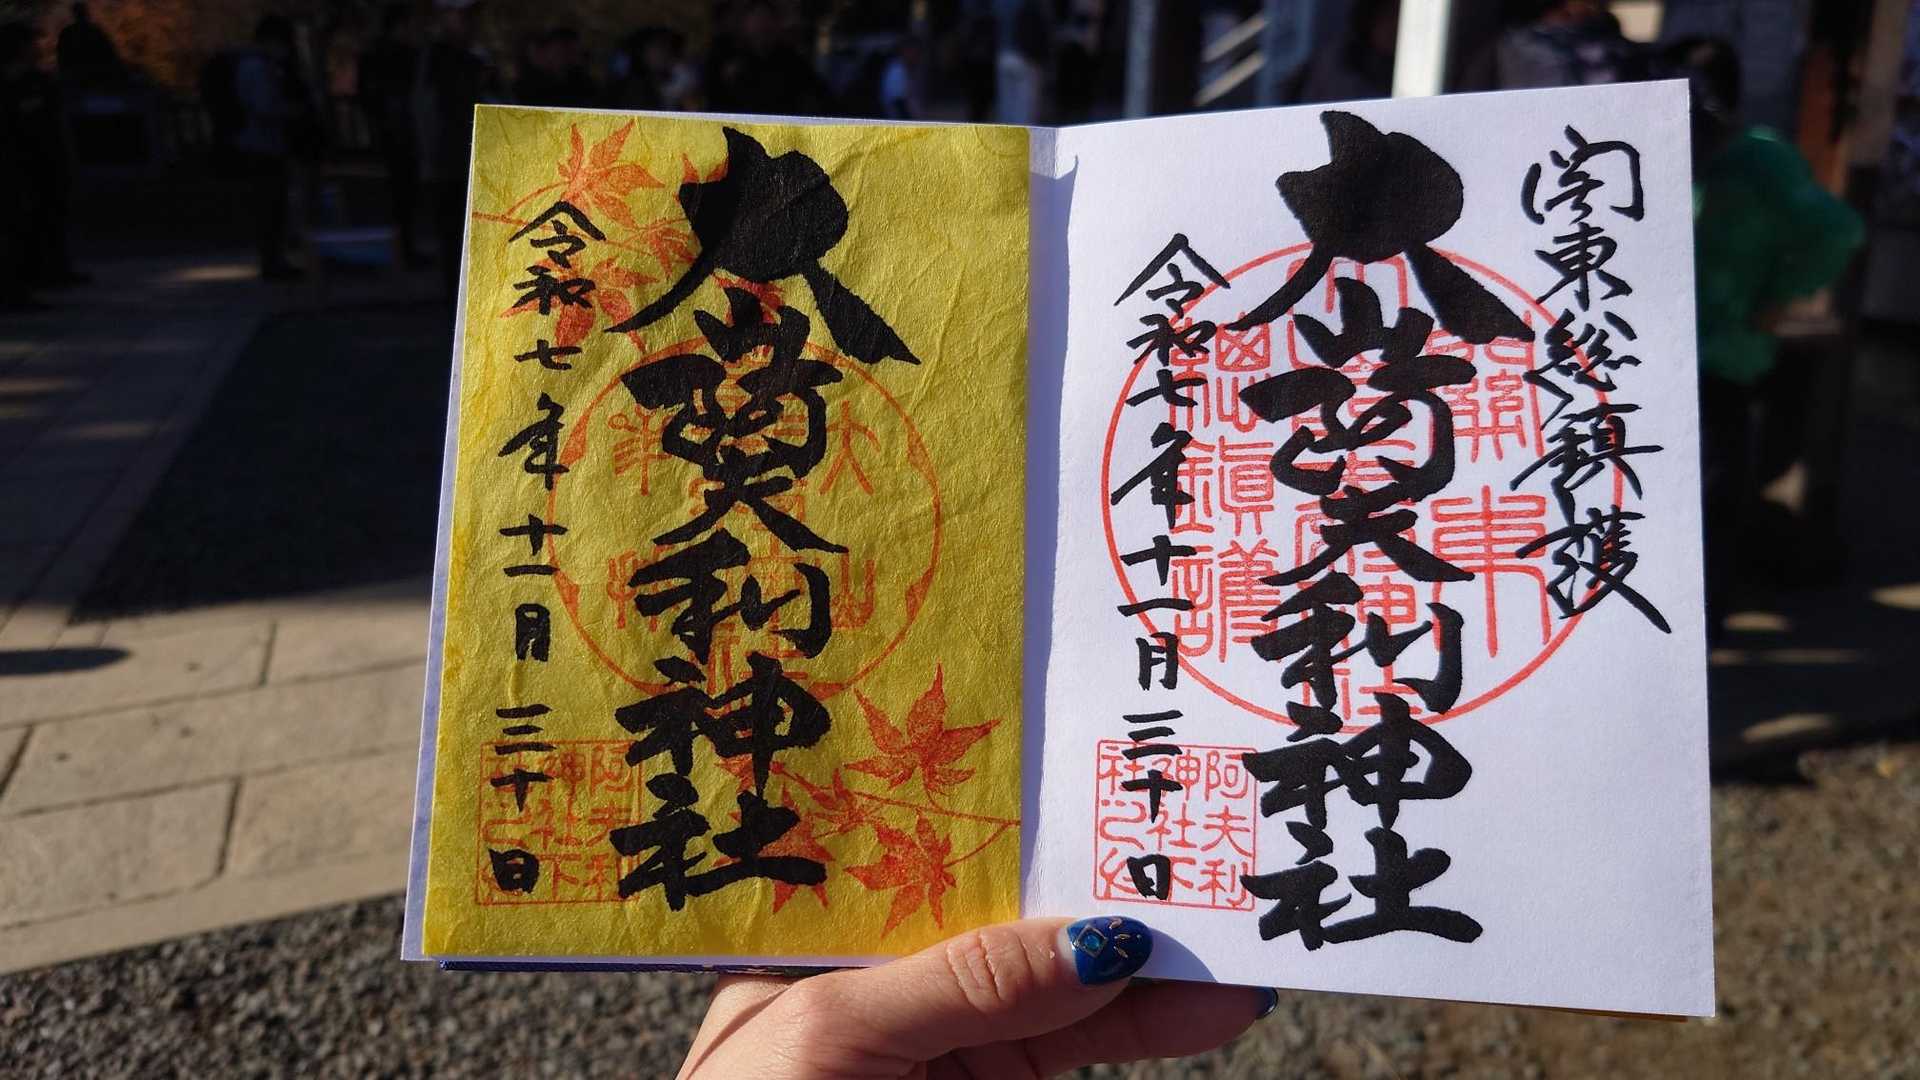 関東総鎮護
大山阿夫利神社
令和七年十一月三十日
關東
總鎮護
阿夫利
神社下
社
大山阿夫利神社
令和七年十一月三十日
大山
阿夫利
神社下
社